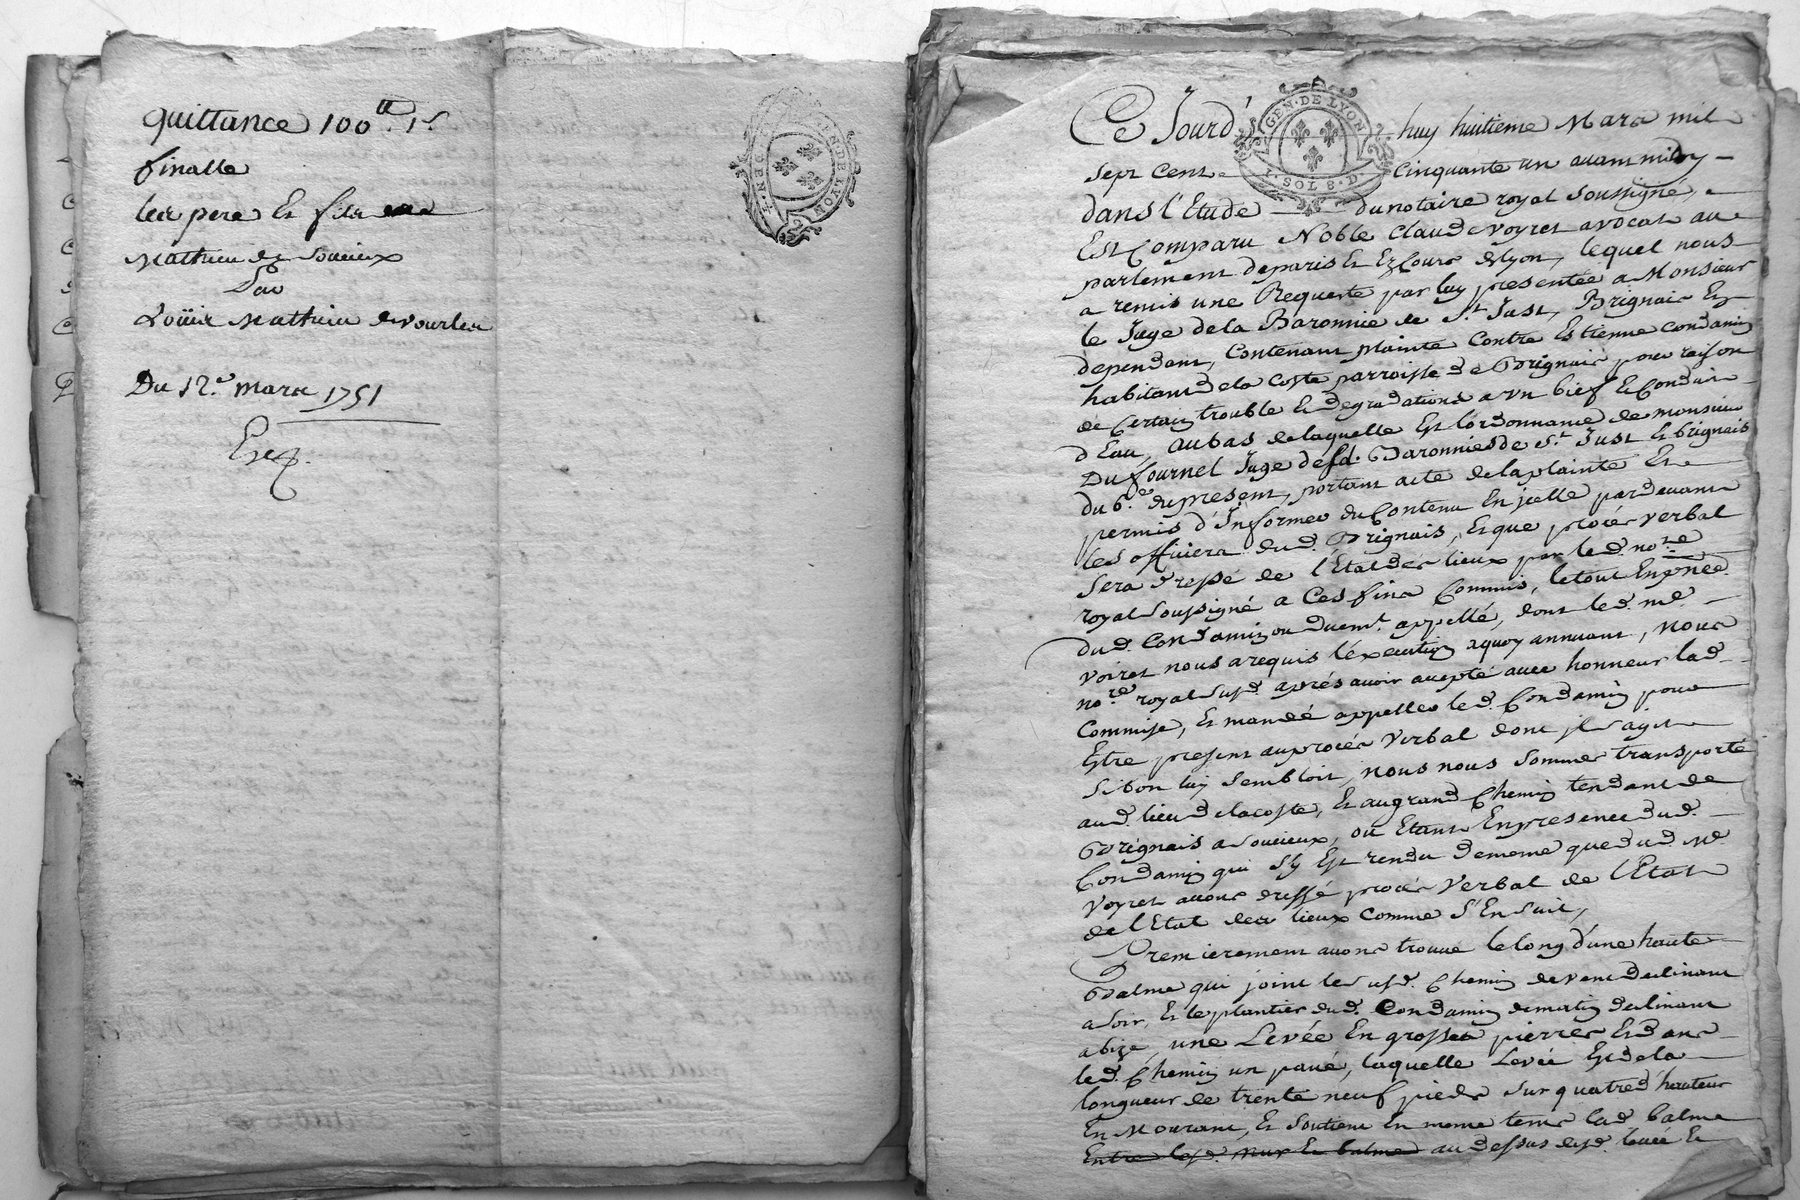 quittance 100ᵗᵗ 1ˢ
finalle
les pere Et fils
Mathieu de Soucieux
Par
Loüis Mathieu de vourles
Du 12.e mars 1751
GEN. DE LYON
Ce Jourd'huy huitieme Mars mil
GEN. DE LYON
1. SOL 8. D.
sept cent cinquante un avant midy
dans l'Etude du notaire royal soussigné,
Est Comparu Noble Claude voyret avocat au
parlement de paris Et Ez Cours de lyon, lequel nous
a remis une Requeste par luy presentée a Monsieur
le Juge de la Baronnie de St. Just, Brignais Et
dependant, Contenant plainte Contre Estienne Condamin
habitant de la Coste parroisse de Brignais pour raison
de Certain trouble Et degradations a un bief Et Conduit
d'Eau, au bas de laquelle Est l'ordonnance de monsieur
Du fournel Juge desd. Baronnies de St. Just Et brignais
du 6.e du present, portant acte de la plainte Et
permis d'Informer du Contenu En jcelle pardevant
les officiers dud. Brignais, Et que procés verbal
sera dressé de l'Etat des lieux par led. nore
royal soussigné a Ces fins Commis, le tout En
dud. Condamin ou duemt. appellé, dont led. me
voiret nous a requis l'éxecution a quoy annuant, Nous
nore. royal susd. aprés avoir accepté avec honneur lad.
Commise, Et mandé appeller led. Condamin pour
Estre present au procés verbal dont jl s'agit
si bon luy sembloit, nous nous sommes transporté
aud. lieu de la Coste, Et au grand Chemin tendant de
Brignais a Soucieux, ou Etant En presence dud.
Condamin qui s'y Est rendu de meme que dud. Me
Voyret avons dressé procés verbal de l'Etat
de l'Etat des lieux Comme s'En suit,
Premierement avons trouvé le long d'une haute
Balme qui joint le susd. Chemin de vent declinant
a soir, Et le plantier dud. Condamin de matin declinant
a bize, une Levée En grosses pierres Et dans
led. Chemin un pavé, laquelle Levée Est de la
longueur de trente neuf pieds sur quatre d'hauteur
En Mourant, Et soutient En meme tems lad. balme
Entre lesd. mur Et balme au dessus desd. levée Et